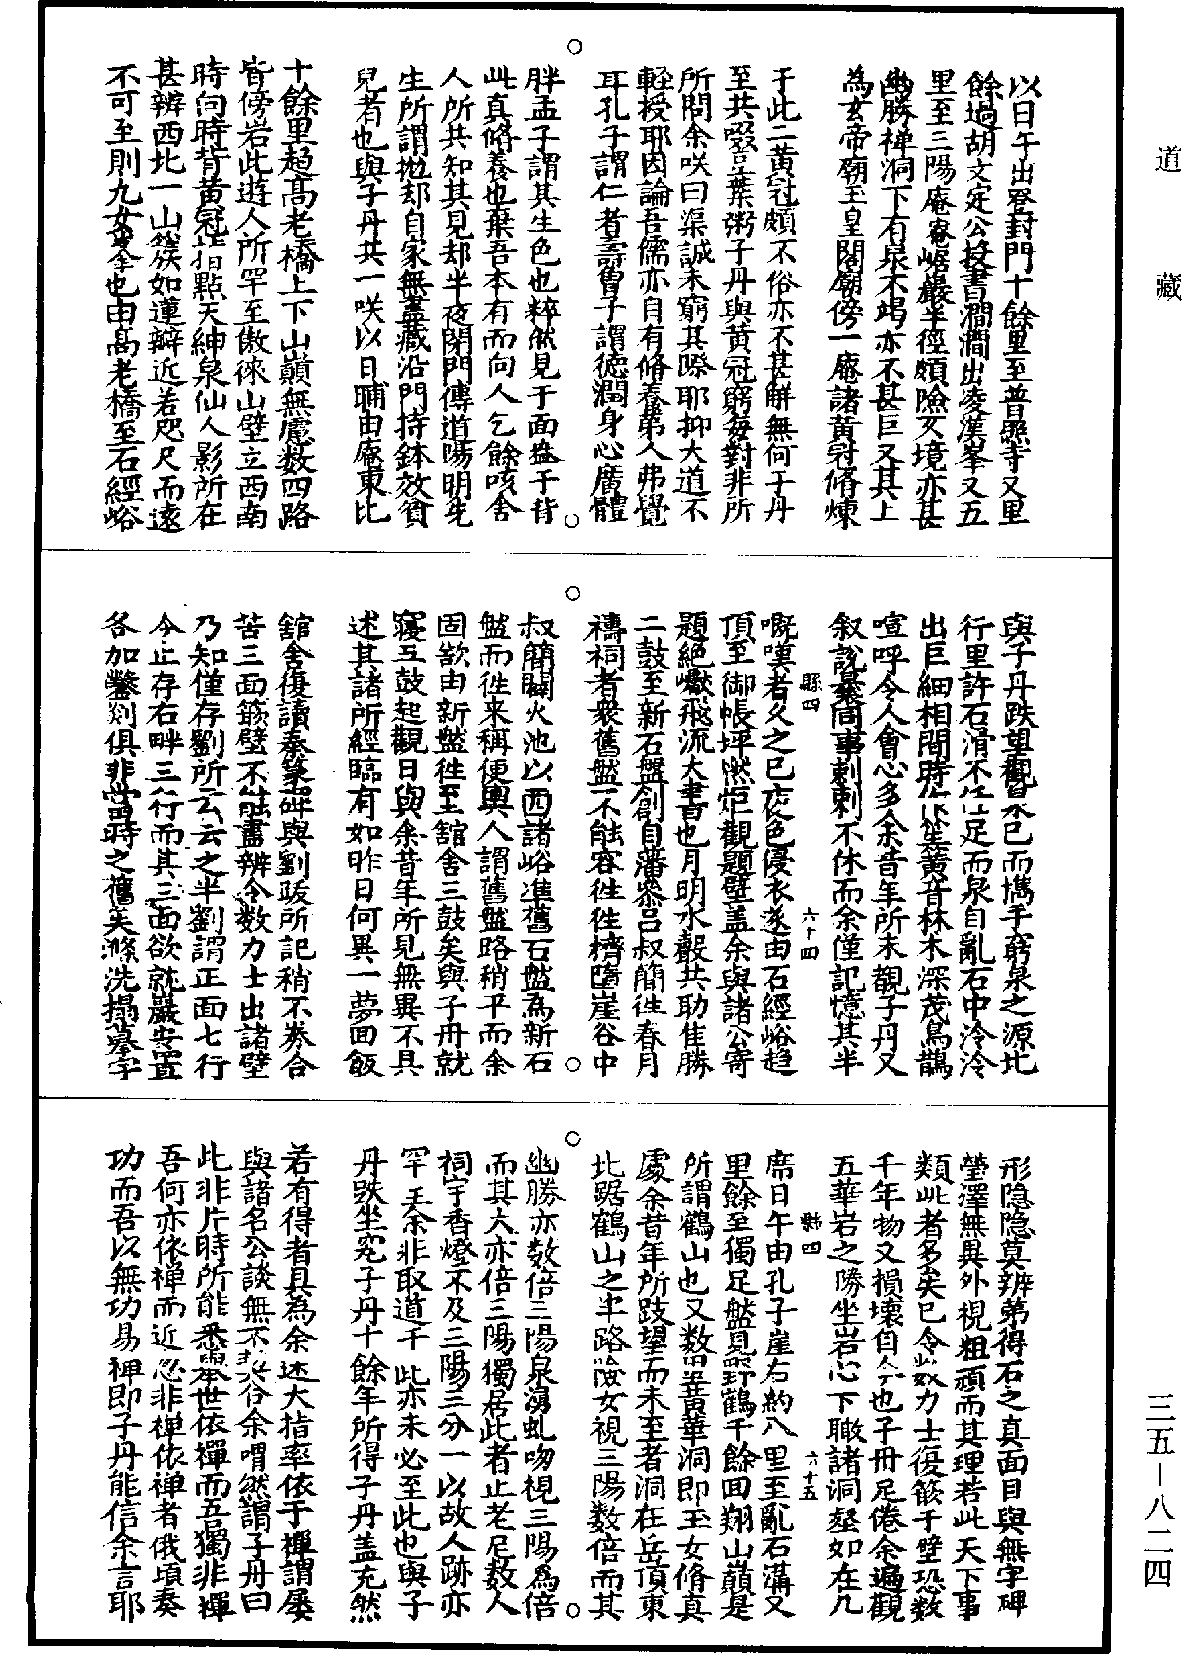 道藏
以日午出登封門十餘里至普照寺又里
餘過胡文定公投書澗澗出凌漢峯又五
里至三陽庵庵崛巖半徑頗險文境亦甚
幽勝禅洞下有泉不竭亦不甚巨又其上
為玄帝廟玉皇閣廟傍一庵諸黃冠脩煉
于此二黃冠頗不俗亦不甚解無何于丹
至共啜豆葉粥子丹與黃冠窮每對非所
所問余咲曰渠誠未窮其際耶抑大道不
輕授耶因論吾儒亦自有脩養弟人弗覺
耳孔子謂仁者壽曾子謂德潤身心廣體
胖孟子謂其生色也粹然見于面盎于背
此真脩養也棄吾本有而向人乞餘咳舍
人所共知其見却半夜閉門傳道陽明先
生所謂抛却自家無盡藏沿門持鉢效貧
兒者也與子丹共一咲以日晡由庵東比
十餘里起高老橋上下山巔無慮数四路
皆傍岩此遊人所罕至傲徠山壁立西南
時向時背黃冠指點天紳泉仙人影所在
甚辨西北一山簇如蓮瓣近若咫尺而遠
不可至則九女峯也由高老橋至石經峪
與子丹跌望觀水已而携手窮泉之源北
行里許石滑不任足而泉自亂石中泠泠
出巨細相間時作笙簧音林木深茂鳥鵲
喧呼令人會心多余昔年所未觀子丹又
叙說曩同事剌剌不休而余僅記憶其半
嘅嘆者久之已夜色侵衣遂由石經峪趋
頂至御帳坪燃炬觀題壁盖余與諸公寄
題絕巘飛流大書也月明水聲共助佳勝
二鼓至新石盤創自藩參呂叔簡徃春月
禱祠者衆舊盤不能容徃徃擠墮崖谷中
叔簡闢火池以西諸峪準舊石盤為新石
盤而徃来稱便輿人謂舊盤路稍平而余
固欲由新盤徃至舘舍三鼓矣與子丹就
寝五鼓起觀日與余昔年所見無異不具
述其諸所經臨有如昨日何異一夢回飯
舘舍復讀秦篆碑與劉跂所記稍不券合
苦三面簌壁不能盡辨令数力士出諸壁
乃知僅存劉所云云之半劉謂正面七行
今止存右畔三行而其三面欲就巖安置
各加鏨剡俱非當時之舊矣滌洗搨摹字
形隐隐莫辨弟得石之真面目與無字碑
瑩澤無異外視粗頑而其理若此天下事
類此者多矣已令数力士復簌于壁恐数
千年物又損壞自今也子丹足倦余遍觀
五華岩之勝坐岩心下瞰諸洞壑如在几
席日午由孔子崖右約八里至亂石溝又
里餘至獨足盤見野鶴千餘回翔山巔是
所謂鶴山也又数里黃華洞即玉女脩真
處余昔年所跂望而未至者洞在岳頂東
北踞鶴山之半路險女視三陽数倍而其
幽勝亦数倍三陽泉湧虬吻視三陽為倍
而其大亦倍三陽獨居此者止老尼数人
祠宇香燈不及三陽三分一以故人跡亦
罕至余非取道于此亦未必至此也與子
丹趺坐究子丹十餘年所得子丹盖充然
若有得者具為余述大指率依于禪謂屡
與諸名公談無不契合余喟然謂子丹曰
此非片時所能悉舉世依禪而吾獨非禪
吾何亦依禅而近忽非禅依禅者俄頃奏
功而吾以無功易禅即子丹能信余言耶
縣四
六十四
縣四
六十五
三五－八二四